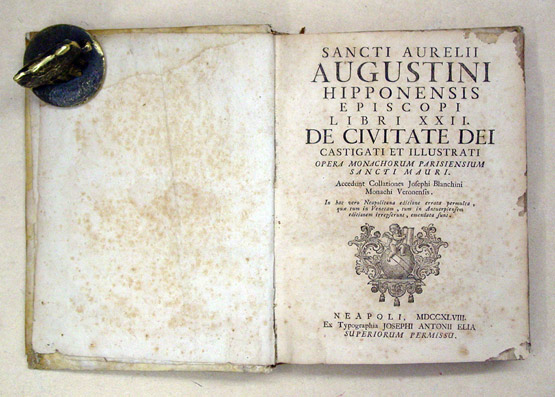 SANCTI AURELII
AUGUSTINI
HIPPONENSIS
EPISCOPI
LIBRI XXII.
DE CIVITATE DEI
CASTIGATI ET ILLUSTRATI
OPERA MONACHORUM PARISIENSIUM
SANCTI MAURI.
Accedunt Collationes Josephi Blanchini
Monachi Veronensis.
In hac vero Neapolitana editione errata permulta,
quæ tum in Venetam, tum in Antuerpiensem
editionem irrepserunt, emendata sunt.
NEAPOLI, MDCCXLVIII.
Ex Typographia JOSEPHI ANTONII ELIA
SUPERIORUM PERMISSU.